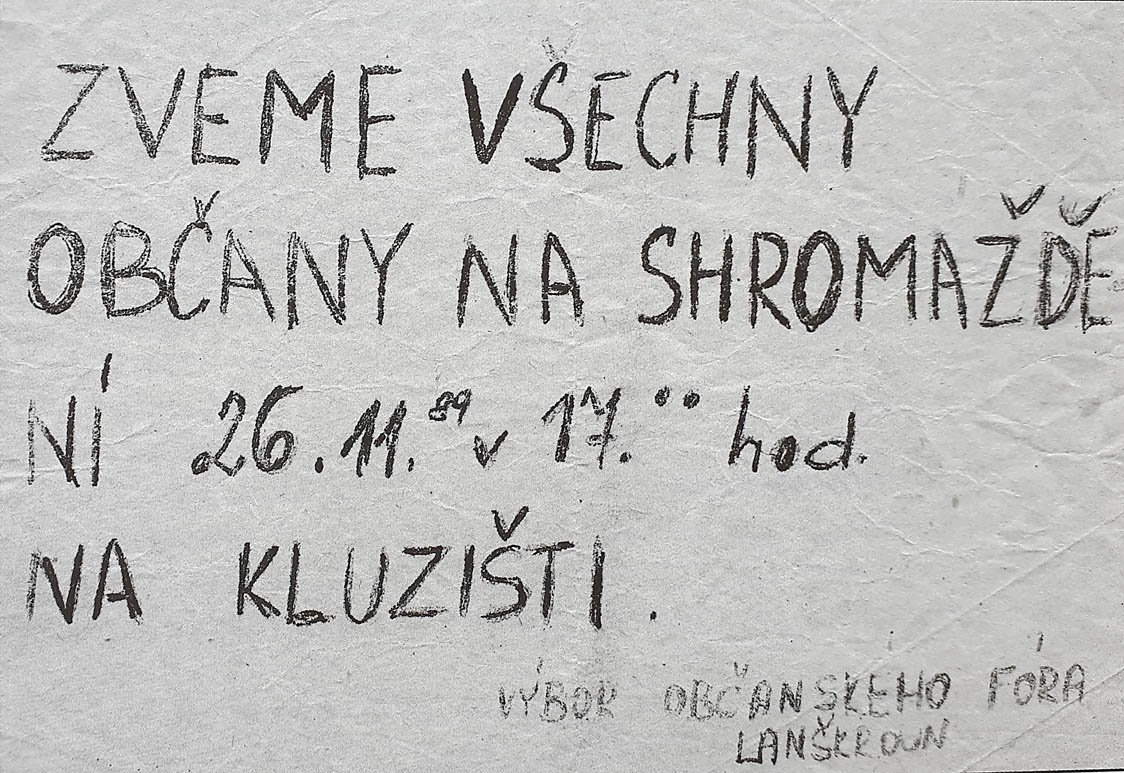 ZVEME VŠECHNY
OBČANY NA SHROMAŽDĚ
NÍ 26.11.89 v 17.00 hod.
NA KLUZIŠTI.
VÝBOR OBČANSKÉHO FÓRA
LANŠKROUN